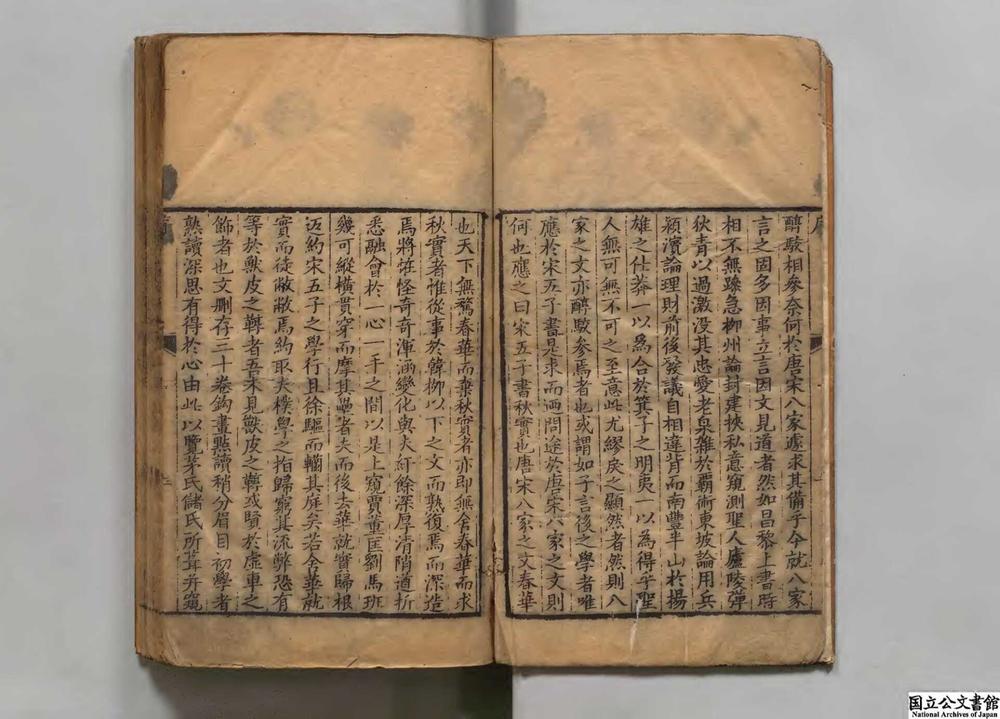 序
醇駁相參奈何於唐宋八家遽求其備乎今就八家
言之因多因事立言因文見道者然如昌黎上書時
相不無躁急柳州論封建挾私意窺測聖人廬陵彈
狄青以過激没其忠愛老泉雜於霸術東坡論用兵
潁濱論理財前後發議自相違背而南豐半山於揚
雄之仕莽一以爲合於箕子之明夷一以為得乎聖
人無可無不可之至意此尤繆戾之顯然者然則八
家之文亦醇駁參焉者也或謂如子言後之學者唯
應於宋五子書是求而迺問途於唐宋八家之文則
何也應之曰宋五子書秋實也唐宋八家之文春華
也天下無騖春華而棄秋實者亦即無舍春華而求
秋實者惟從事於韓柳以下之文而熟復焉而深造
焉將恠怪奇奇渾涵變化與夫紆餘深厚清陗遒折
悉融會於一心一手之間以是上窺賈董匡劉馬班
幾可縱橫貫穿而摩其壘者夫而後去華就實歸根
返約宋五子之學行且徐驅而轥其庭矣若舍華就
實而徒敝敝焉約取夫樸學之指歸窮其流弊恐有
等於獸皮之鞹者吾未見獸皮之鞹或賢於虛車之
飾者也文删存三十卷鈎畫㸃讀稍分眉目初學者
熟讀深思有得於心由此以覽茅氏儲氏所葺并窺
国立公文書館
National Archives of Japan